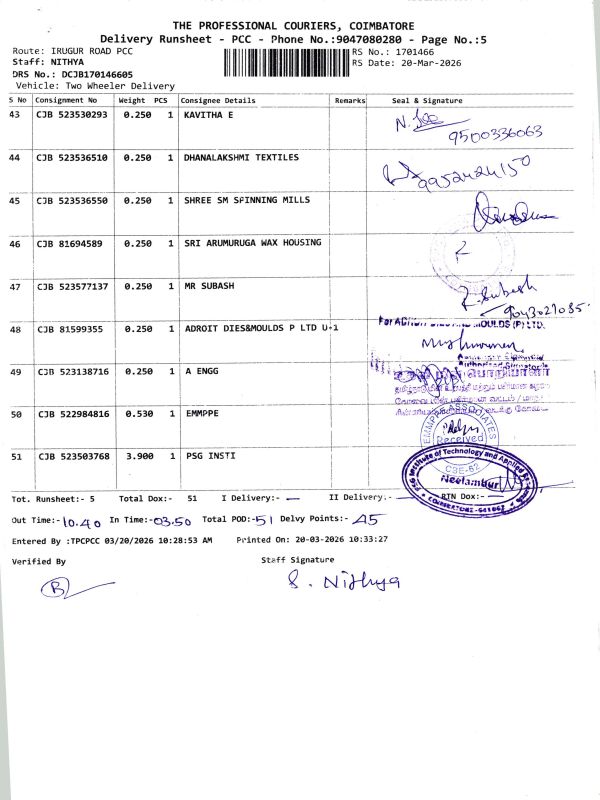 THE PROFESSIONAL COURIERS, COIMBATORE
Delivery Runsheet - PCC - Phone No.:9047080280 - Page No.:5
Route: IRUGUR ROAD PCC RS No.: 1701466
Staff: NITHYA RS Date: 20-Mar-2026
DRS No.: DCJB170146605
Vehicle: Two Wheeler Delivery
S No Consignment No Weight PCS Consignee Details Remarks Seal & Signature
43 CJB 523530293 0.250 1 KAVITHA E
9500336063
44 CJB 523536510 0.250 1 DHANALAKSHMI TEXTILES
9952424150
45 CJB 523536550 0.250 1 SHREE SM SPINNING MILLS
46 CJB 81694589 0.250 1 SRI ARUMURUGA WAX HOUSING
47 CJB 523577137 0.250 1 MR SUBASH
R. Subash
9043021035
48 CJB 81599355 0.250 1 ADROIT DIES&MOULDS P LTD U-1
MOULDS (P) LTD.
Authorised Signatory
49 CJB 523138716 0.250 1 A ENGG
பொறியாளர்
50 CJB 522984816 0.530 1 EMMPPE
ASSOCIATES
Received
51 CJB 523503768 3.900 1 PSG INSTI
PSG Institute of Technology and Applied
CBE-62
Neelambur
COIMBATORE-641062
Tot. Runsheet:- 5 Total Dox:- 51 I Delivery:- — II Delivery:- — RTN Dox:- —
Out Time:- 10.40 In Time:- 03.50 Total POD:- 51 Delvy Points:- 45
Entered By :TPCPCC 03/20/2026 10:28:53 AM Printed On: 20-03-2026 10:33:27
Verified By Staff Signature
B S. Nithya